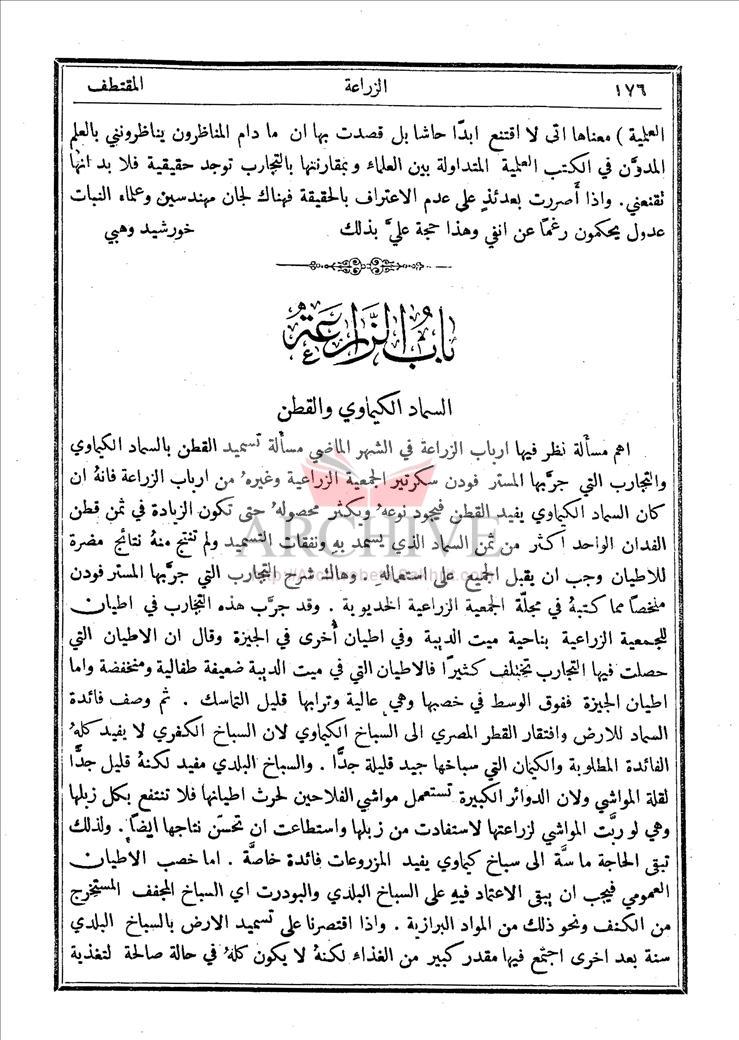 ١٧٦ الزراعة المقتطف
العلمية) معناها اني لا اقتنع ابدًا حاشا بل قصدت بها ان ما دام المناظرون يناظرونني بالعلم
المدوَّن في الكتب العلمية المتداولة بين العلماء وبمقارنتها بالتجارب توجد حقيقية فلا بد انها
تقنعني. واذا أصررت بعدئذٍ على عدم الاعتراف بالحقيقة فهناك لجان مهندسين وعلماء النبات
عدول يحكمون رغمًا عن انفي وهذا حجة عليَّ بذلك خورشيد وهبي
باب الزراعة
السماد الكيماوي والقطن
اهم مسألة نظر فيها ارباب الزراعة في الشهر الماضي مسألة تسميد القطن بالسماد الكيماوي
والتجارب التي جربها المستر فودن سكرتير الجمعية الزراعية وغيرهُ من ارباب الزراعة فانهُ ان
كان السماد الكيماوي يفيد القطن فيجود نوعهُ ويكثر محصولهُ حتى تكون الزيادة في ثمن قطن
الفدان الواحد اكثر من ثمن السماد الذي يسمد بهِ ونفقات التسميد ولم تنتج منهُ نتائج مضرة
للاطيان وجب ان يقبل الجميع على استعماله. وهاك شرح التجارب التي جربها المستر فودن
ملخصًا مما كتبهُ في مجلة الجمعية الزراعية الخديوية. وقد جرَّب هذه التجارب في اطيان
للجمعية الزراعية بناحية ميت الديبة وفي اطيان أُخرى في الجيزة وقال ان الاطيان التي
حصلت فيها التجارب تختلف كثيرًا فالاطيان التي في ميت الديبة ضعيفة طفالية ومنخفضة واما
اطيان الجيزة ففوق الوسط في خصبها وهي عالية وترابها قليل التماسك. ثم وصف فائدة
السماد للارض وافتقار القطر المصري الى السباخ الكيماوي لان السباخ الكفري لا يفيد كلهُ
الفائدة المطلوبة والكيمان التي سباخها جيد قليلة جدًّا. والسباخ البلدي مفيد لكنهُ قليل جدًّا
لقلة المواشي ولان الدوائر الكبيرة تستعمل مواشي الفلاحين لحرث اطيانها فلا تنتفع بكل زبلها
وهي لو ربَّت المواشي لزراعتها لاستفادت من زبلها واستطاعت ان تحسّن نتاجها ايضًا. ولذلك
تبقى الحاجة ماسَّة الى سباخ كيماوي يفيد المزروعات فائدة خاصَّة. اما خصب الاطيان
العمومي فيجب ان يبقى الاعتماد فيهِ على السباخ البلدي والبودرت اي السباخ المجفف المستخرج
من الكنف ونحو ذلك من المواد البرازية. واذا اقتصرنا على تسميد الارض بالسباخ البلدي
سنة بعد اخرى اجتمع فيها مقدر كبير من الغذاء لكنهُ لا يكون كلهُ في حالة صالحة لتغذية
ARCHIVE